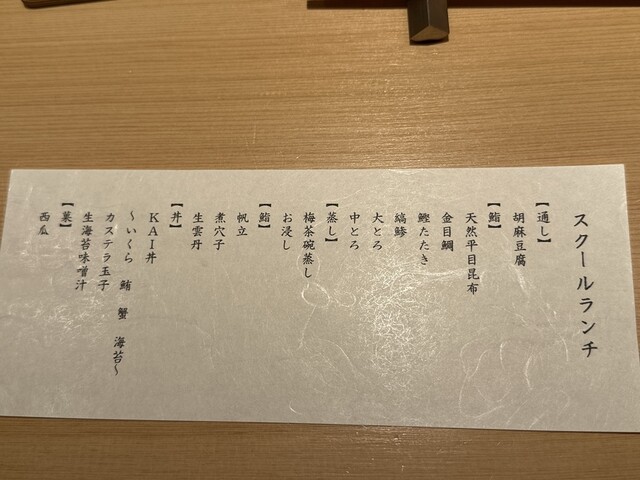 スクールランチ
【通し】
胡麻豆腐
【鮨】
天然平目昆布
金目鯛
鰹たたき
縞鯵
大とろ
中とろ
【蒸し】
梅茶碗蒸し
お浸し
【鮨】
帆立
煮穴子
生雲丹
【丼】
KAI丼
～いくら 鮪 蟹 海苔～
カステラ玉子
生海苔味噌汁
【菓】
西瓜